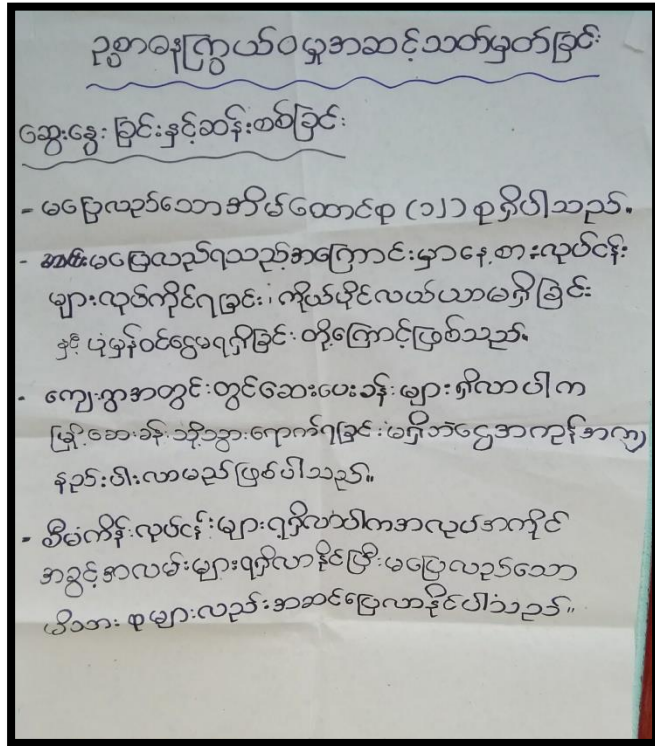 ဥစ္စာဓနကြွယ်ဝမှုအဆင့်သတ်မှတ်ခြင်း
ဆွေးနွေးခြင်းနှင့်ဆန်းစစ်ခြင်း
- မပြေလည်သောအိမ်ထောင်စု (၁၂) စုရှိပါသည်။
- မပြေလည်ရသည့်အကြောင်းမှာနေ့စားလုပ်ငန်း
များလုပ်ကိုင်ရခြင်း၊ ကိုယ်ပိုင်လယ်ယာမရှိခြင်း
နှင့် ပုံမှန်ဝင်ငွေမရရှိခြင်းတို့ကြောင့်ဖြစ်သည်။
- ကျေးရွာအတွင်းတွင်ဆေးပေးခန်းများရှိလာပါက
မြို့ဆေးခန်းသို့သွားရောက်ရခြင်းမရှိဘဲငွေအကုန်အကျ
နည်းပါးလာမည်ဖြစ်ပါသည်။
- စီမံကိန်းလုပ်ငန်းများရရှိလာပါကအလုပ်အကိုင်
အခွင့်အလမ်းများရရှိလာနိုင်ပြီးမပြေလည်သော
မိသားစုများလည်းအဆင်ပြေလာနိုင်ပါသည်။